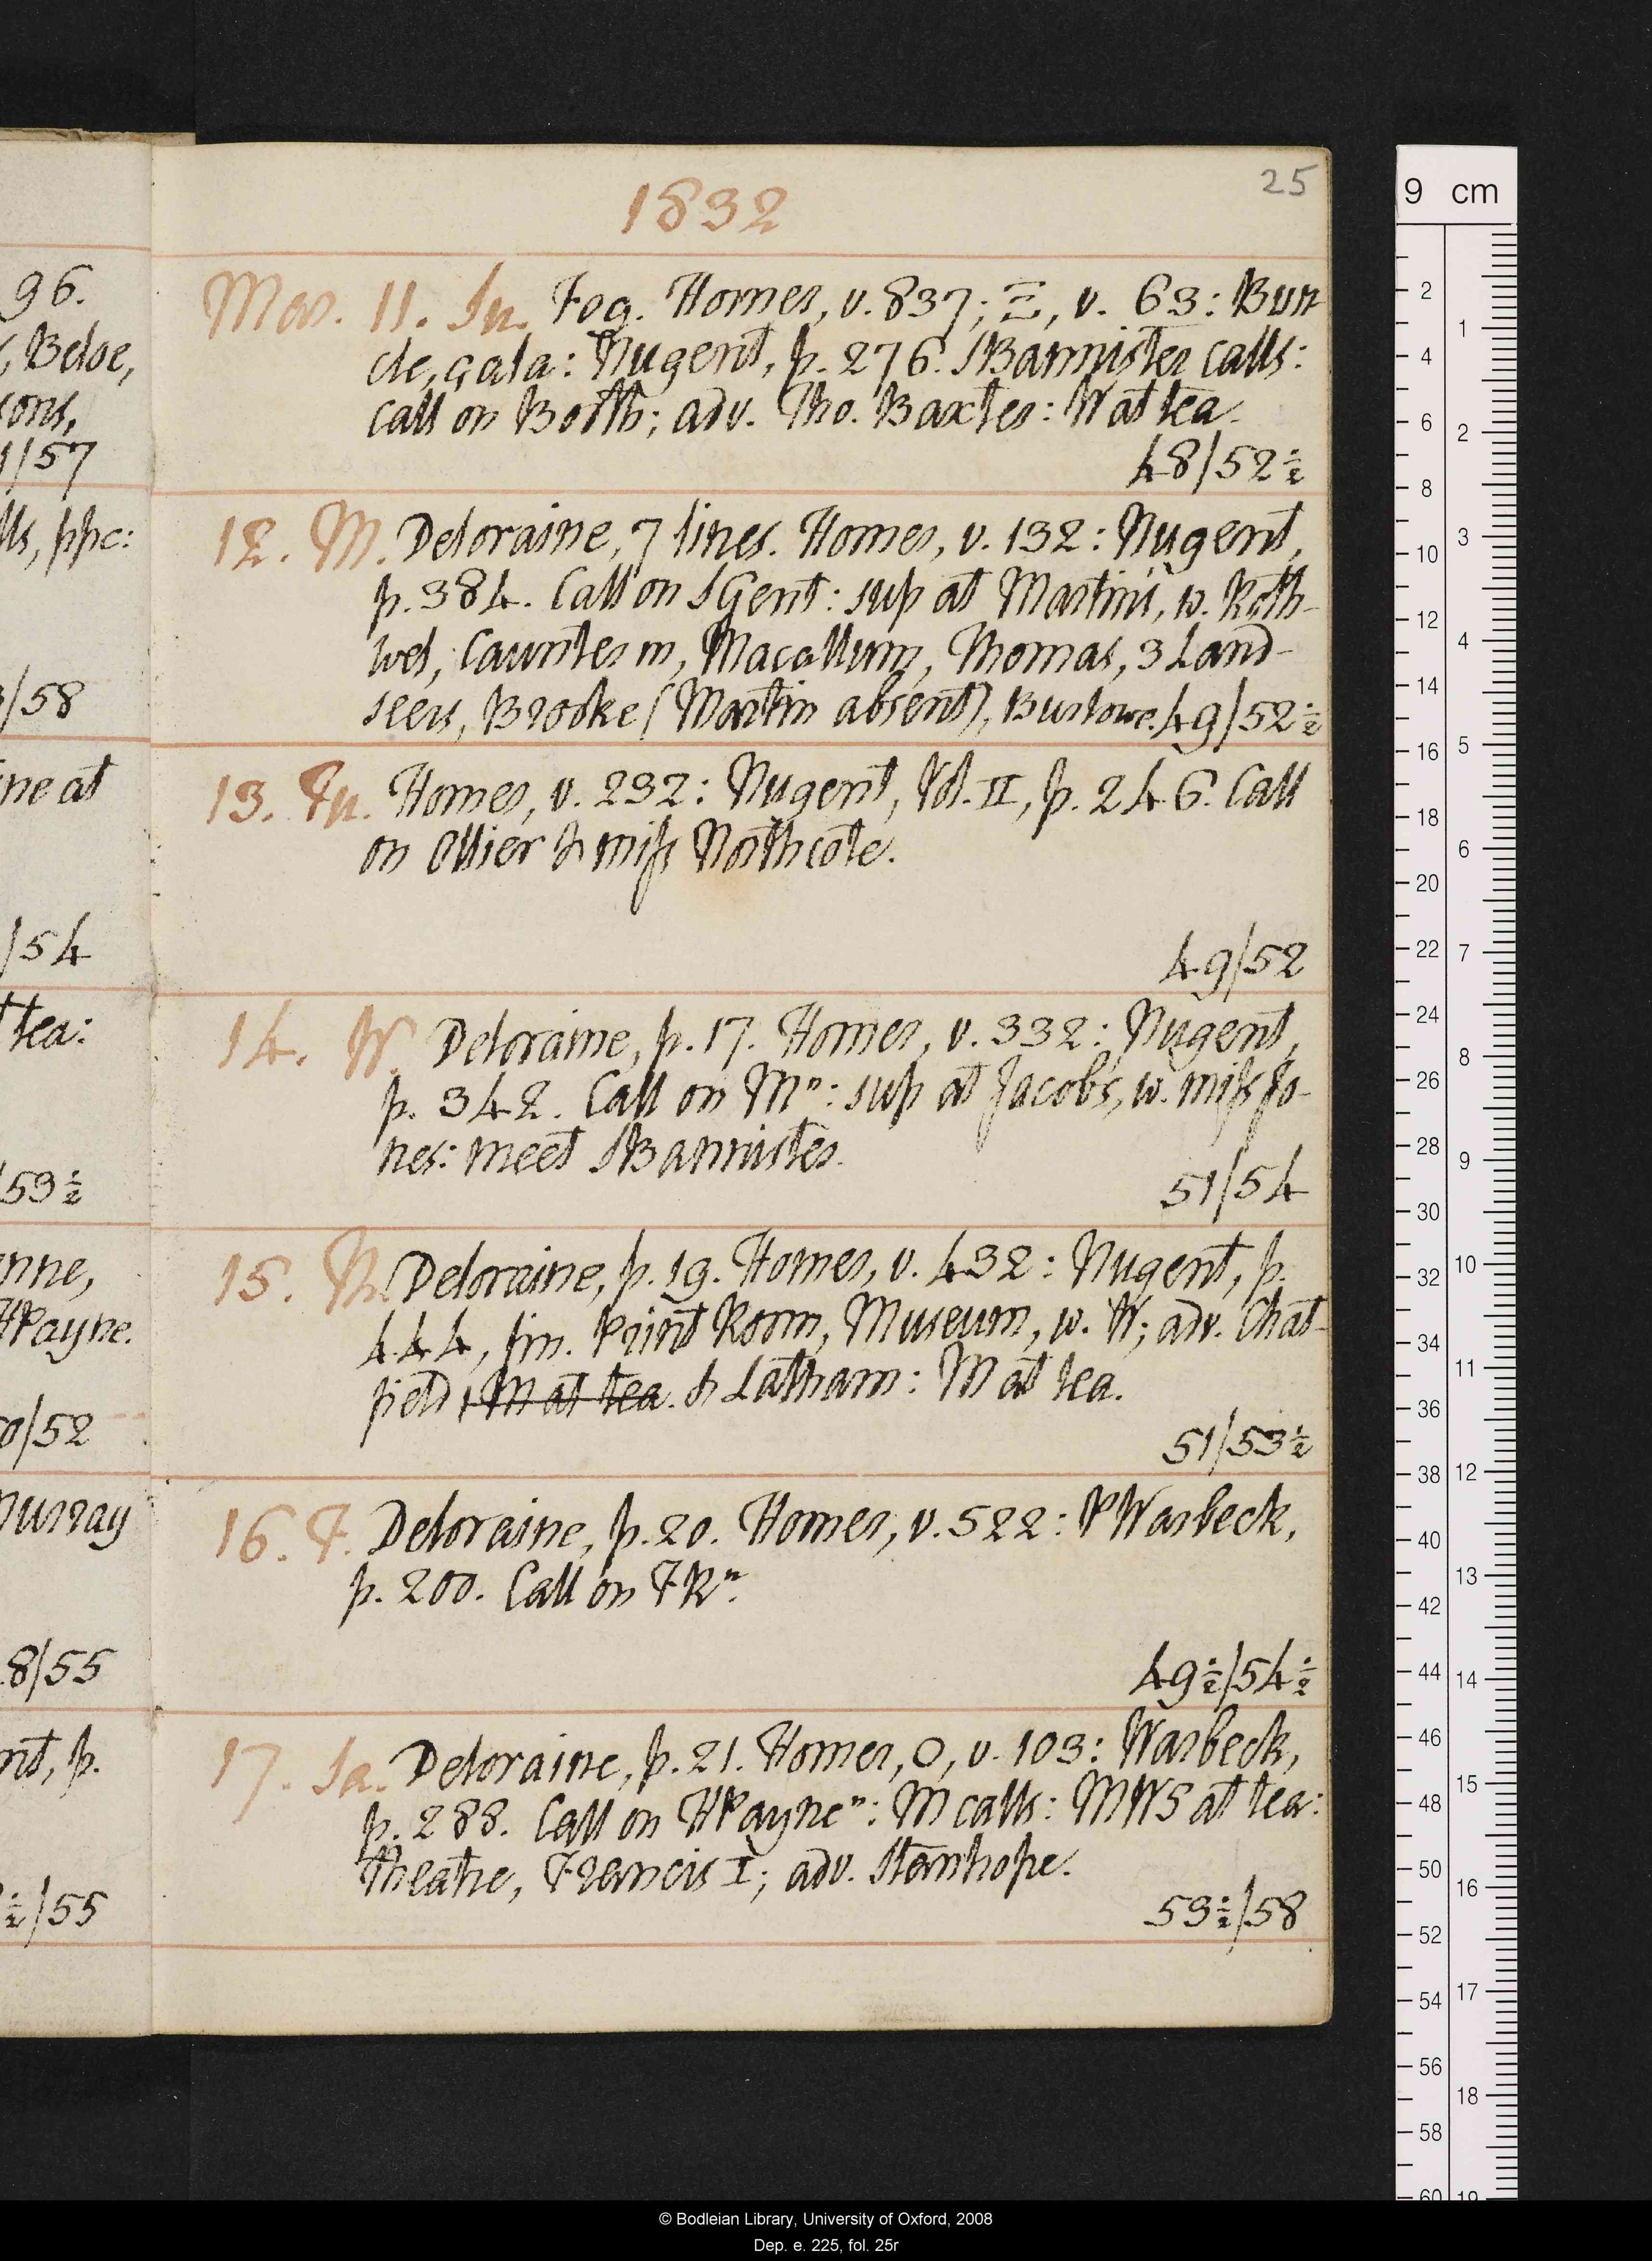 25
1832
96.
, Beloe,
sons,
1/57
lls, ppc:
/58
ne at
/54
tea:
/53½
nne,
HPayne.
0/52
Murray
8/55
nt, p.
½/55
Mar. 11. Su. Fog. Homer, v. 837; Ξ, v. 63: Bun-
cle, çala: Nugent, p. 276. SBannister calls:
call on Booth; adv. Tho. Baxter: W at tea.
48/52½
12. M. Deloraine, 7 lines. Homer, v. 132: Nugent,
p. 384. Call on SGent: sup at Martin's, w. Roth-
wel, Caunter m, Macallum, Thomas, 3 Land-
seers, Brooke (Martin absent), Burlowe. 49/52½
13. Tu. Homer, v. 232: Nugent, Vol. II, p. 246. Call
on Ollier & miss Northcote.
49/52
14. W. Deloraine, p. 17. Homer, v. 332: Nugent,
p. 342. Call on Mⁿ: sup at Jacob's, w. miss Jo-
nes: meet SBannister.
51/54
15. Th. Deloraine, p. 19. Homer, v. 432: Nugent, p.
444, fin. Print Room, Museum, w. W; adv. Chat-
field, M at tea. & Latham: M at tea.
51/53½
16. F. Deloraine, p. 20. Homer, v. 522: PWarbeck,
p. 200. Call on FRⁿ.
49½/54½
17. Sa. Deloraine, p. 21. Homer, O, v. 103: Warbeck,
p. 288. Call on HPayneⁿ: M calls: MWS at tea:
theatre, Francis I; adv. Stanhope.
53½/58
9 cm
© Bodleian Library, University of Oxford, 2008
Dep. e. 225, fol. 25r